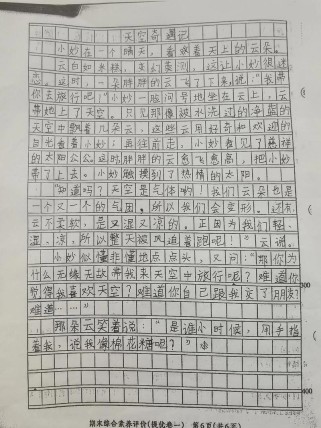 天空奇遇记
小妙在一个晴天，看着天上的云朵。
云白如米糕，来们羡测，这让小妙很迷
恋。这时，一朵胖胖的云飞了下来，说："我带
你去旅行吧！"小妙一脸问号地坐在云上，云
带她上了天空。只见那像被水洗过的净蓝的
天空中飘着几朵云，这些云用好奇和欢迎的
目光看着小妙；再往前走，小妙看见了慈祥
的太阳公公。这时胖胖的云愈飞愈高，把小妙
带了上去。小妙触摸到了热情的太阳。
"知道吗？天空是气体哟！我们云朵也是
一个又一个的气团。所以我们会变形。还有，
云不柔软，是又湿又凉的。正因为我们轻、
湿、凉，所以整天被风追着跑呢！"云说。
小妙似懂非懂地点点头，又问："那你为
什么无缘无故带我来天空中旅行呢？难道你
觉得我喜欢天空？难道你自己跟我交了朋友？
难道……"
那朵云笑着说："是谁小时候，用手指
着我，说我像棉花糖呢？"
300
400
期末综合素养评价(提优卷一) 第6页(共6页)